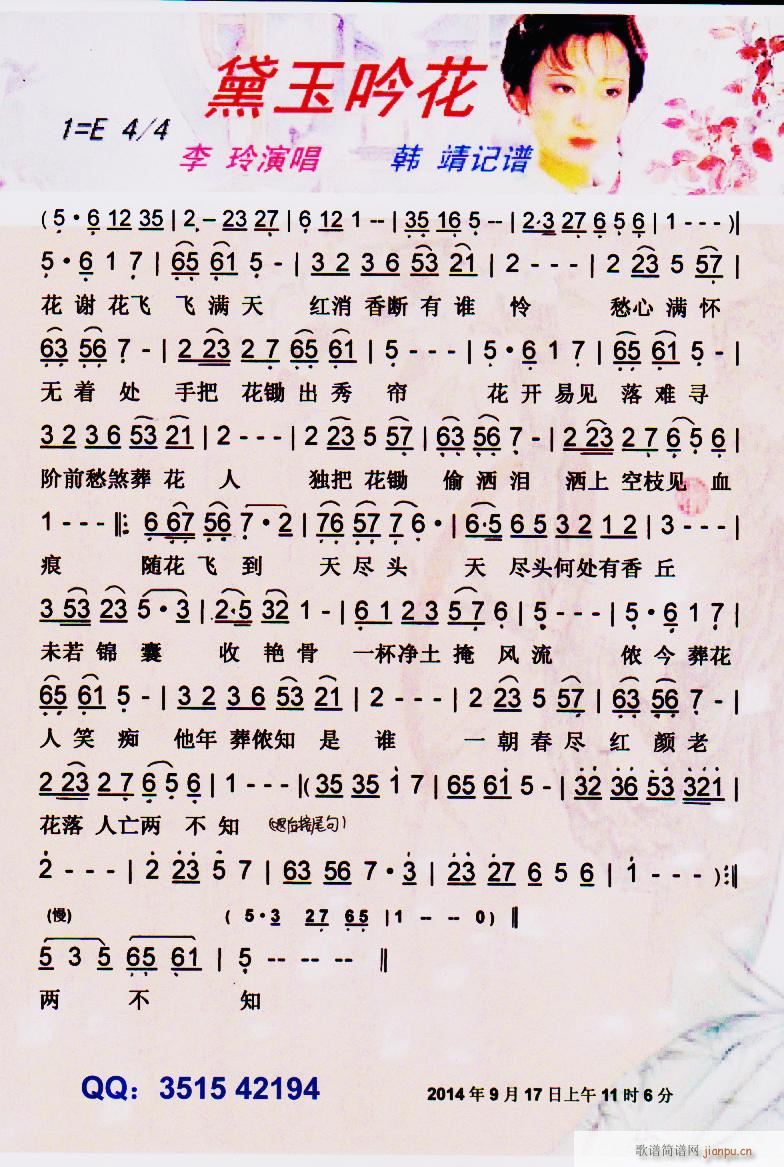 黛玉吟花
1=E 4/4
李 玲演唱 韩 靖记谱
(5·6 12 35|2·–23 27|6 12 1--|35 16 5--|2·3 27 6 5 6|1---)|
5·6 1 7|65 61 5-|3 2 3 6 53 21|2---|2 23 5 57|
花谢花飞 飞满天 红消香断有谁 怜 愁心满怀
63 56 7-|2 23 2 7 65 61|5---|5·6 1 7|65 61 5-|
无着 处 手把 花锄出秀 帘 花开易见 落难寻
3 2 3 6 53 21|2---|2 23 5 57|63 56 7-|2 23 2 7 6 5 6|
阶前愁煞葬 花 人 独把 花锄 偷洒泪 洒上 空枝见 血
1---‖:6 67 56 7·2|76 57 7 6·|6·5 6 5 3 2 1 2|3---|
痕 随花 飞 到 天 尽头 天 尽头何处有香 丘
3 53 23 5·3|2·5 32 1-|6 1 2 3 5 7 6|5---|5·6 1 7|
未若 锦 囊 收 艳 骨 一杯净土 掩 风 流 侬 今 葬花
65 61 5-|3 2 3 6 53 21|2---|2 23 5 57|63 56 7-|
人 笑 痴 他年 葬侬知 是 谁 一 朝 春 尽 红 颜 老
2 23 2 7 6 5 6|1---|(35 35 1 7|65 61 5-|32 36 53 321|
花落 人亡两 不 知
2---|2 23 5 7|63 56 7·3|23 27 6 5 6|1---):‖
(慢) (5·3 27 65|1 -- -- 0)‖
5 3 5 65 61|5 -- -- --‖
两 不 知
QQ：3515 42194
2014 年 9 月 17 日上午 11 时 6 分
歌谱简谱网
jianpu.cn